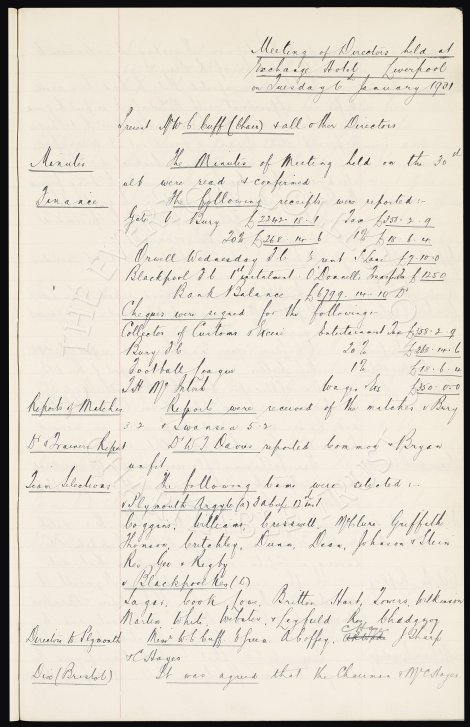 Meeting of Directors held at
Exchange Hotel Liverpool
on Tuesday 6th January 1931
Present Mr W C Cuff (Chair) & all other Directors
Minutes The Minutes of Meeting held on the 30th
ult were read & confirmed
Finance The following receipts were reported:-
Gate v Bury £2242-18-1 Tax £358-2-9
20% £268-14-6 1% £18-6-4
Orwell Wednesday FC Ground £7-10-0
Blackpool FC 1st instalment O'Donnells Transfer £1250
Bank Balance £6799-14-10 D
Cheques were signed for the following:-
Collector of Customs & Excise Entertainment Tax £358-2-9
Bury FC 20% £268-14-6
Football League 1% £18-6-4
T H McIntosh Wages &c £350-0-0
Reports of Matches Reports were received of the matches v Bury
3-2 & Swansea 5-2
Dr & Trainers Report Dr W T Davies reported Common & Bryan
unfit
Team Selections The following teams were selected:-
v Plymouth Argyle (a) 3rd of Cup 13th inst
Coggins, Williams, Cresswell, McClure, Griffiths
Thomson, Critchley, Dunn, Dean, Johnson & Stein
Res Gee & Rigby
v Blackpool Res (c)
Sagar, Cook, Lowe, Britton, Hart, Towers, Wilkinson
Martin, White, Webster & Leyfield Res Chadgzoy
Directors to Plymouth Messrs W C Cuff E Green A Coffey, J Sharp
& C Hayes
Dix (Bristol) It was agreed that the Chairman & Mr C Hayes
THE EVERTON